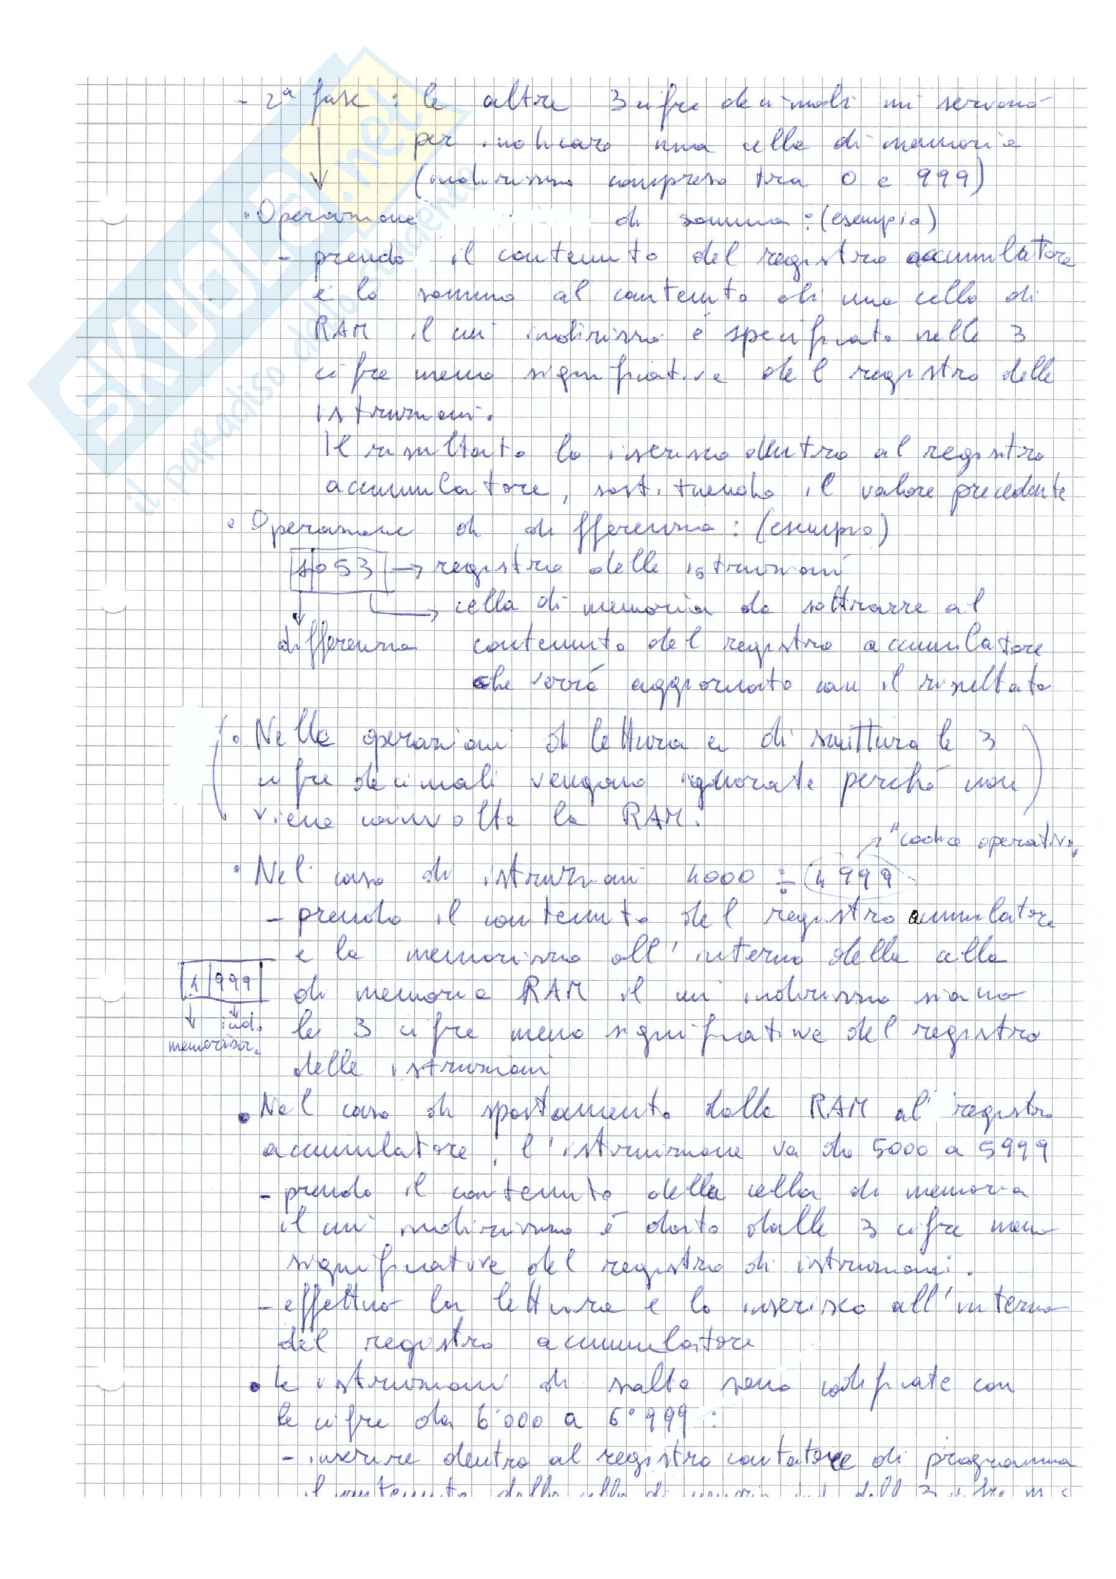 - 2ª fase : le altre 3 cifre decimali mi servono
per indicare una cella di memoria
(indirizzo compreso tra 0 e 999)
• Operazione di somma : (esempio)
- prendo il contenuto del registro accumulatore
e lo sommo al contenuto di una cella di
RAM il cui indirizzo è specificato nelle 3
cifre meno significative del registro delle
istruzioni.
Il risultato lo inserisco dentro al registro
accumulatore, sostituendo il valore precedente
• Operazione di differenza : (esempio)
1053 → registro delle istruzioni
cella di memoria da sottrarre al
differenza contenuto del registro accumulatore
che verrà aggiornato con il risultato
(• Nelle operazioni di lettura e di scrittura le 3
cifre decimali vengono ignorate perché non
viene coinvolta la RAM.)
"codice operativo"
• Nel caso di istruzioni 4000 ÷ 4999
- prendo il contenuto del registro accumulatore
e lo memorizzo all'interno della cella
4 999
di memoria RAM il cui indirizzo siano
ind.
le 3 cifre meno significative del registro
memorizzaz.
delle istruzioni
• Nel caso di spostamento dalla RAM al registro
accumulatore, l'istruzione va da 5000 a 5999
- prendo il contenuto della cella di memoria
il cui indirizzo è dato dalle 3 cifre meno
significative del registro di istruzioni.
- effettuo la lettura e lo inserisco all'interno
del registro accumulatore
• le istruzioni di salto sono codificate con
le cifre da 6000 a 6999 :
- inserire dentro al registro contatore di programma
il contenuto della cella di
SKUOLA.net
il paradiso dello studente